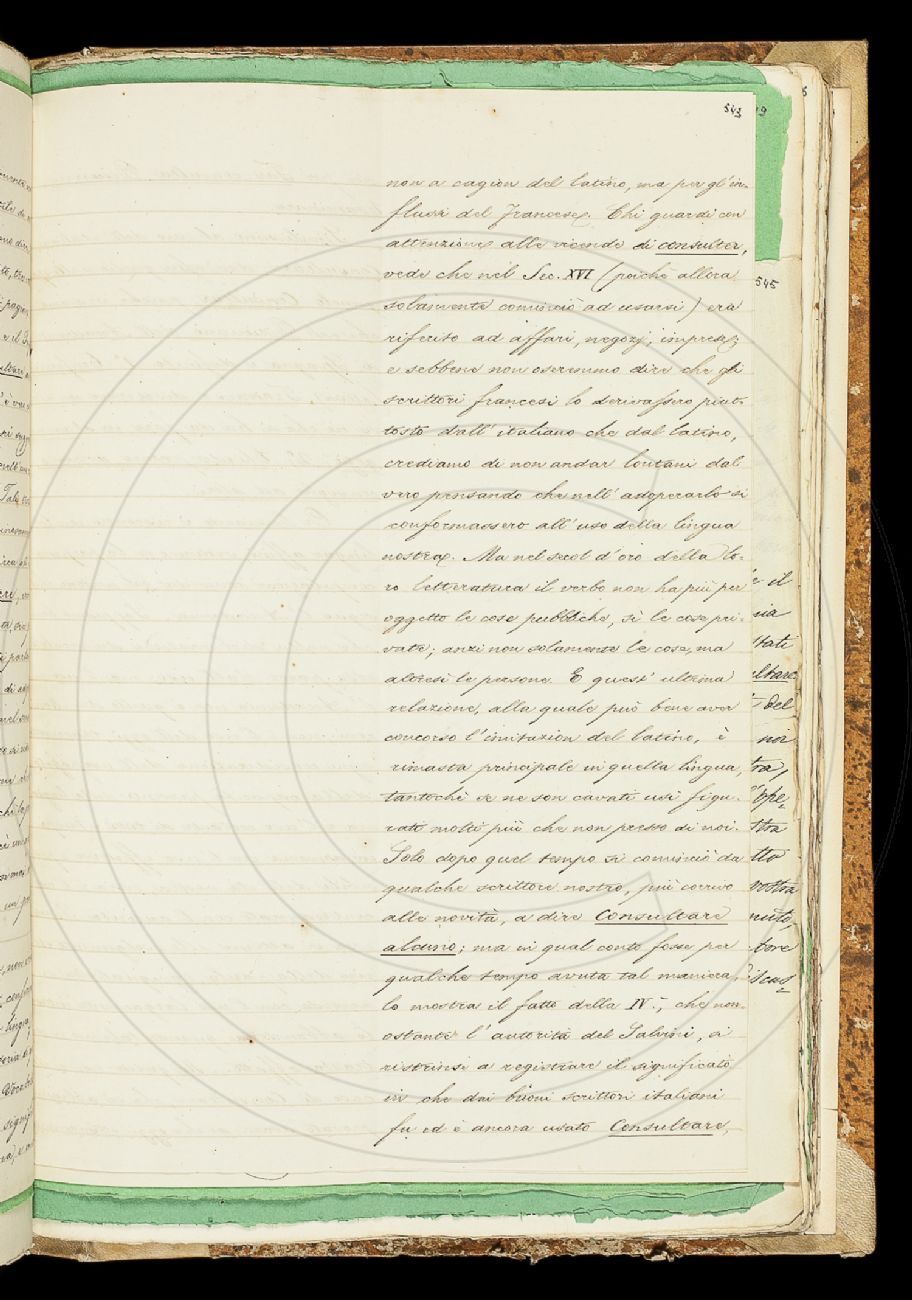 543
non a cagion del latino, ma per gl'in-
flussi del Francese. Chi guardi con
attenzione alle vicende di consulter,
vede che nel Sec. XVI (poichè allora
solamente cominciò ad usarsi) era
riferito ad affari, negozj, imprese;
e sebbene non oseremmo dire che gli
scrittori francesi lo derivassero piut-
tosto dall'italiano che dal latino,
crediamo di non andar lontani dal
vero pensando che nell'adoperarlo si
conformassero all'uso della lingua
nostra. Ma nel secol d'oro della lo-
ro letteratura il verbo non ha più per
oggetto le cose pubbliche, sì le cose pri-
vate; anzi non solamente le cose, ma
altresì le persone. E quest'ultima
relazione, alla quale può bene aver
concorso l'imitazion del latino, è
rimasta principale in quella lingua,
tantochè se ne son cavati usi figu-
rati molti più che non presso di noi.
Solo dopo quel tempo si cominciò da
qualche scrittore nostro, più corrivo
alle novità, a dire Consultare
alcuno; ma in qual conto fosse per
qualche tempo avuta tal maniera,
lo mostra il fatto della IV.ª, che non-
ostante l'autorità del Salvini, si
ristrinse a registrare il significato
in che dai buoni scrittori italiani
fu ed è ancora usato Consultare,
545